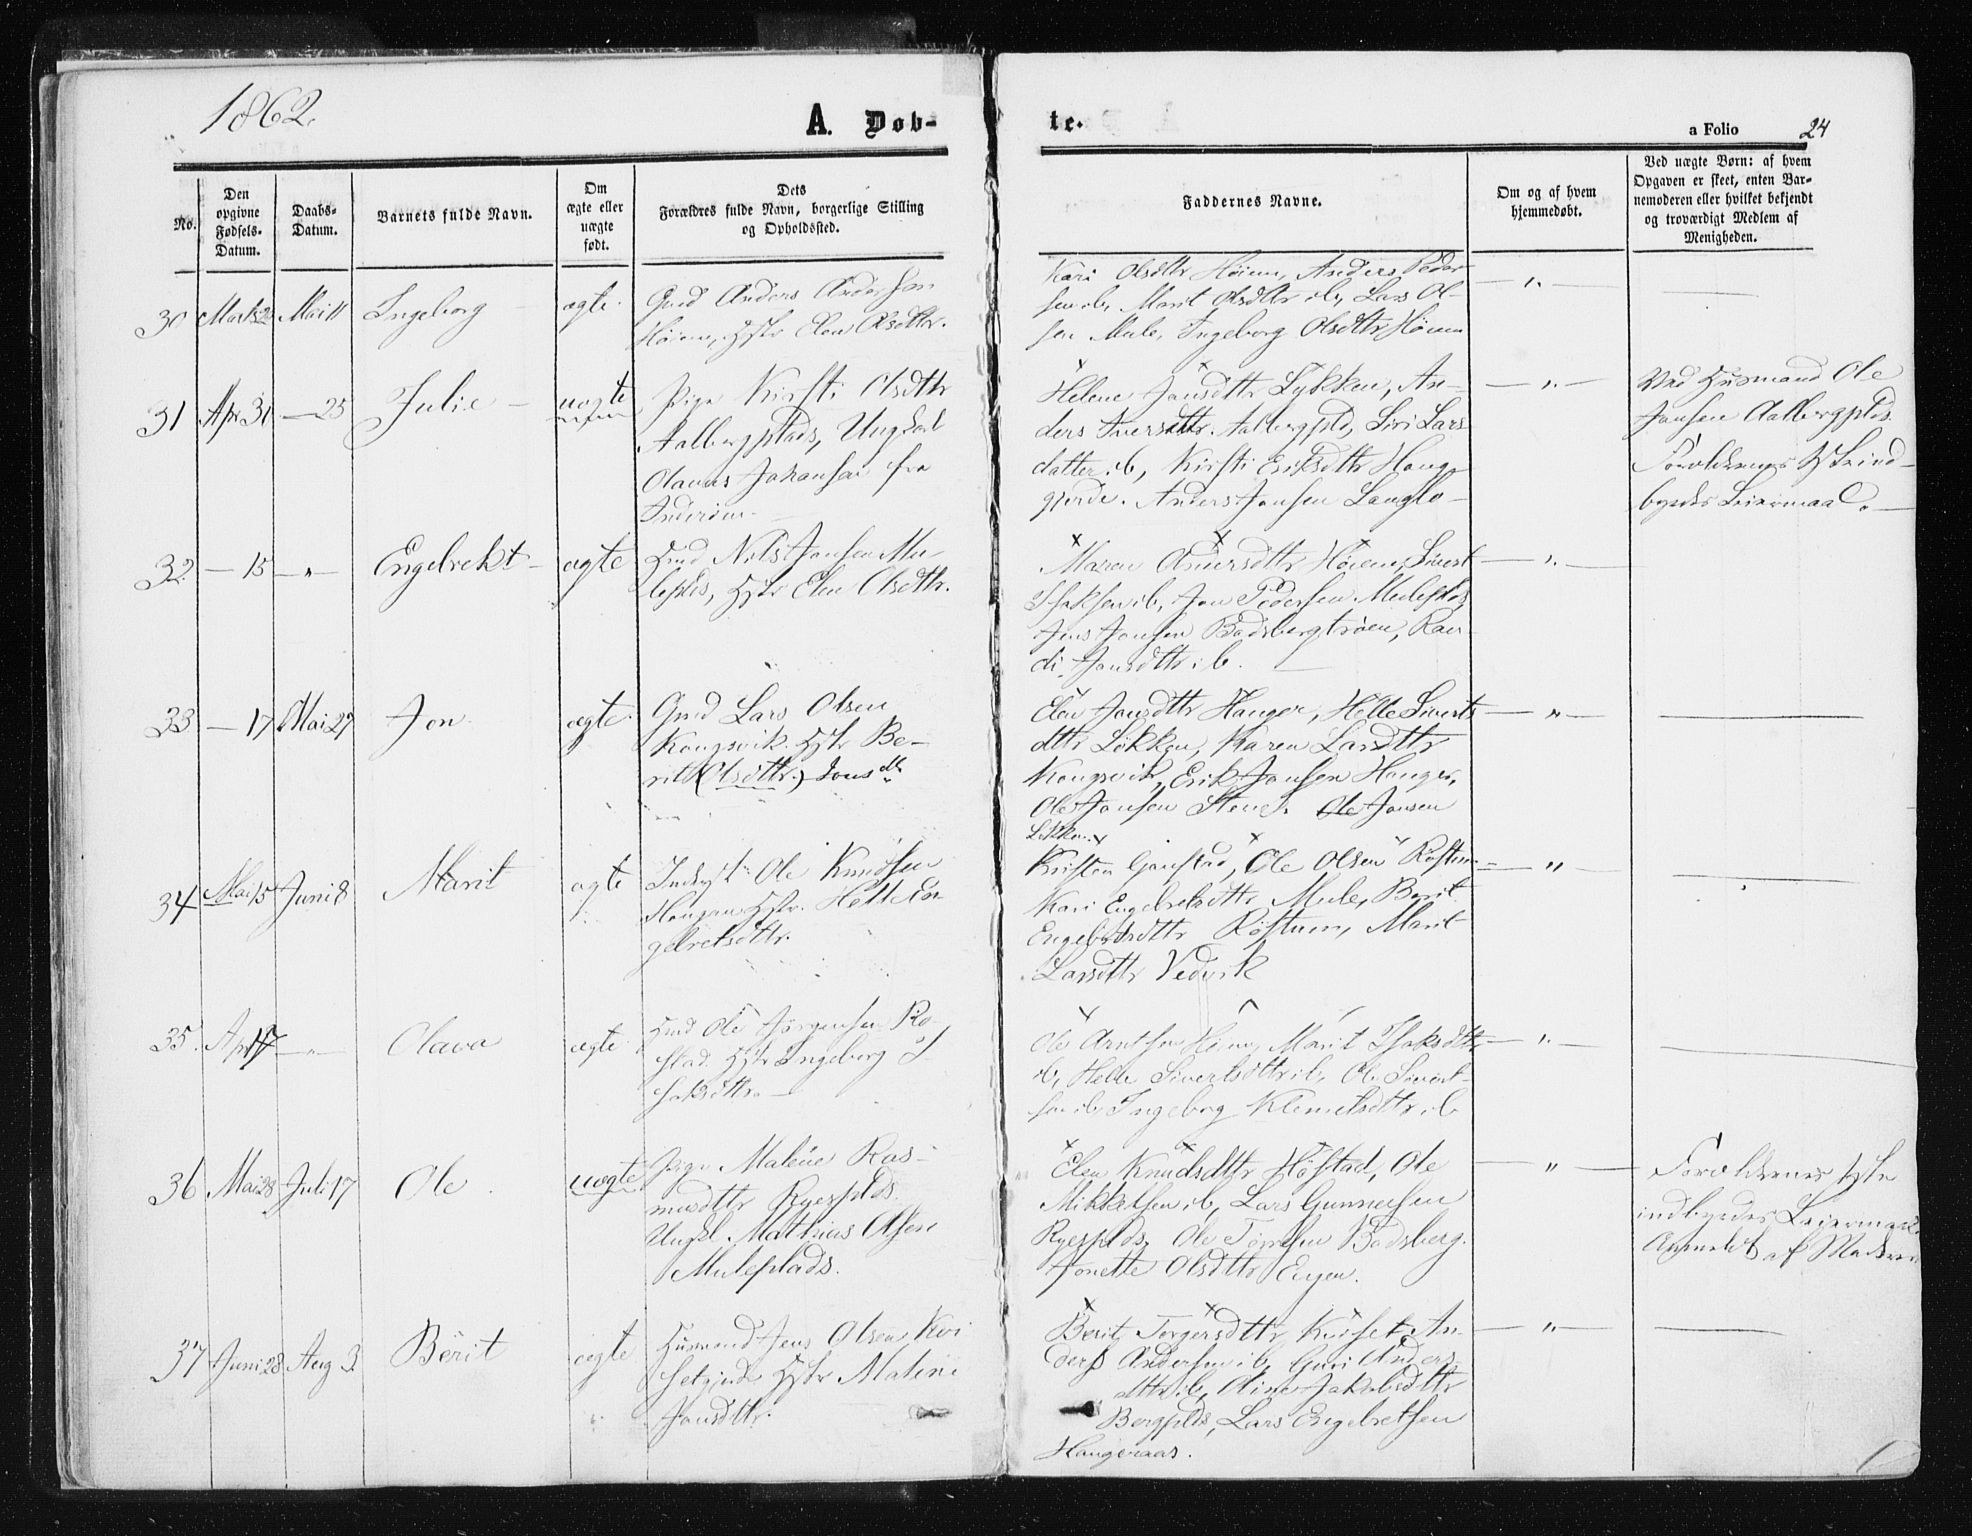 1862.
A. Døb-
te.
a Folio
24
No.
Den opgivne Fødsels-Datum.
Daabs-Datum.
Barnets fulde Navn.
Om ægte eller uægte født.
Dets Forældres fulde Navn, borgerlige Stilling og Opholdssted.
Faddernes Navne.
Om og af hvem hjemmedøbt.
Ved uægte Børn: af hvem Opgaven er skeet, enten Barnemoderen eller hvilket bekjendt og troværdigt Medlem af Menigheden.
30 Marts 2 Mai 11 Ingeborg ægte
Gmd Anders Andersen
Høiem, Hstr Elen Olsdttr.
Kari Olsdttr Høiem, Anders Peder-
sen ib, Marit Olsdttr ib, Lars Ol-
sen Mule, Ingeborg Olsdttr Høiem
— „ —
31 Apr 31 — 25 Julie — uægte
Pige Kirsti Olsdttr
Aalbergplads, Ungkarl
Olaus Johansen fra
Inderøen
Helene Jansdttr Løkken, An-
ders Iversdttr. Aalbergpld, Siri Lars
datter ib, Kirsti Eriksdttr Haug
gjerde. Anders Jonsen Langlo —
— „ —
Ved Husmand Ole
Jansen Aalbergplds.
Forældrenes
byrdes Leiermaal. —
32 — 15 — „ — Engelrekt — ægte
Hmd Nils Jonsen Mu
leplds, Hstr Elen Olsdttr.
Maren Andersdttr Høiem, Sivert
Isaksen ib, Jon Pedersen Muleplds
Jens Jonsen Badsbergtrøen, Ran-
di Jonsdttr ib.
— „ —
33 — 17 Mai 27 Jon ægte
Gmd Lars Olsen
Kongsvik Hstr Be-
rit (Olsdttr.) Jonsdtr
Elen Jonsdttr Hauger, Helle Siverts
dttr Løkken, Karen Larsdttr
Kongsvik, Erik Jonsen Hauger,
Ole Jonsen Stene. Ole Jonsen
Løkken.
— „ —
34 Mai 15 Juni 8 Marit ægte
Indst. Ole Knudsen
Haugan Hstr. Helle En
gelretsdttr.
Kristen Gaustad, Ole Olsen Røstum
Kari Engelretsdttr Mule, Berit
Engebretsdttr Røstum, Marit
Larsdttr Vedvik
— „ —
35. Apr 17 — „ — Olava ægte
Hmd Ole Jørgensen Ro-
stad Hstr Ingeborg I
saksdttr. —
Ole Arntsen Høiem, Marit Isaksdttr
ib, Helle Sivertsdttr ib, Ole Sivert-
sen ib, Ingeborg Klemetsdttr ib
— „ —
36 Mai 28 Juli 17 Ole uægte
Pige Malene Ras-
musdttr Ryesplds.
Ungkl. Mathias Olsen
Muleplads.
Elen Knudsdttr Høstad, Ole
Mikkelsen ib, Lars Gunnersen
Ryesplds, Ole Tørresen Badsberg.
Jonette Olsdttr Engen.
— „ —
Forældrenes 1ste
indbyrdes Leiermaal.
Anmeldt af Moderen
37 Juni 28 Aug 3 Berit ægte
Husmand Jens Olsen Kvi
Hstr Malene
Jonsdttr.
Berit Torgersdttr Kviset, An-
ders Andersen ib, Guri Anders
dttr ib, Oline Jakobsdttr
Bergplds, Lars Engelretsen
Haugeraas.
— „ —